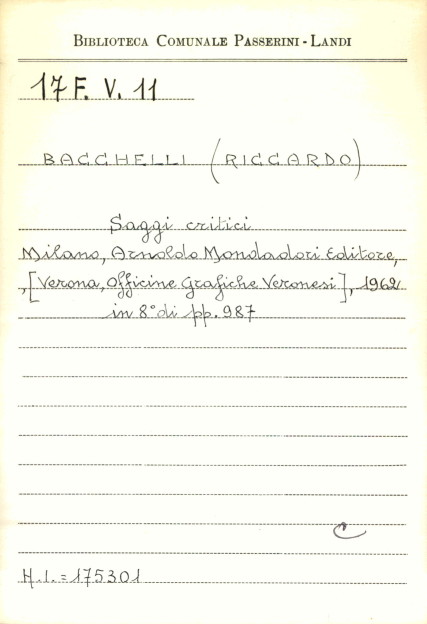 BIBLIOTECA COMUNALE PASSERINI - LANDI
17 F. V. 11
BACCHELLI (RICCARDO)
Saggi critici
Milano, Arnoldo Mondadori Editore,
,[Verona, Officine Grafiche Veronesi], 1962
in 8° di pp. 987
C
H.I.=175301